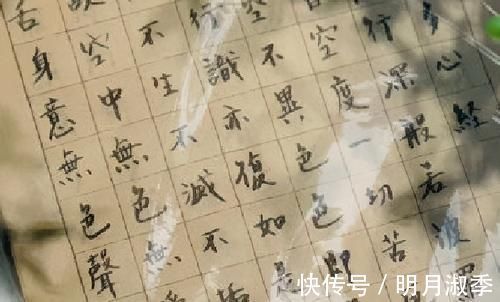 多心經
行深般若波
空度一切苦
空不異色色即
行識亦復如是
不生不滅不垢
空中無色無
舌身意無色聲
快传号／明月淑季